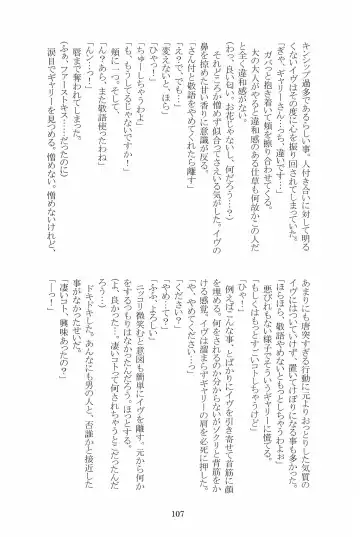 キンシップ過多であるらしい事。人付き合いに対して明る
くないイヴはその度に心を振り回されてしまっていた。
「ぎゃ、ギャリーさ…んっ、違い…っ！」
ガバっと抱き着いて頬を擦り合わせてくる。
大の大人がやると違和感のある仕草も何故かこの人だ
と全く違和感がない。
（わっ、良い匂い…。お花じゃないし、何だろう…？）
それどころか恐ろしい程似合ってさえいる気がした。イヴの
鼻を掠めた甘い香りに意識が反る。
「さん付と敬語をやめてくれたら離す」
「え？で、でも…」
「変えないと、ほら」
「ひゃっ！」
「ちゅーしちゃうわよ」
「も、もうしてるじゃないですか！」
頬に一つ。そして、
「ん？あら、また敬語使ったわね」
「んンーっ！」
唇まで奪われてしまった。
（ふぁ、ファーストキス……だったのに）
涙目でギャリーを見つめる。憎めない。憎めないけれど、
あまりにも唐突すぎる行動に元よりおっとりした気質の
イヴにはついていけず、置いてけぼりになる事も多かった。
「ほらほら、敬語やめないともっとしちゃうわよぉ」
悪びれもない様子でそういうギャリーに慌てる。
「もしくはもっとすごいコトしちゃうけど」
「ひゃ！」
例えばこんな事、とばかりにイヴを引き寄せて首筋に顔
を埋める。何をされるのか分からないがゾクリと背筋をか
ける感覚。イヴは溜まらずギャリーの肩を必死に押した。
「や、やめてくださいっ」
「ください？」
「やめ…って？」
「ふふ、よろしい」
ニッコリ微笑むと意図も簡単にイヴを離す。元から何か
をするつもりはなかったんだろう。ほっとする。
（よ、良かった…。凄いコトって何されちゃうとこだったんだ
ろう…）
ドキドキした。あんなにも男の人と、否誰かと接近した
事がなかったせいだ。
「凄いコト、興味あったの？」
「ーっ！」
107